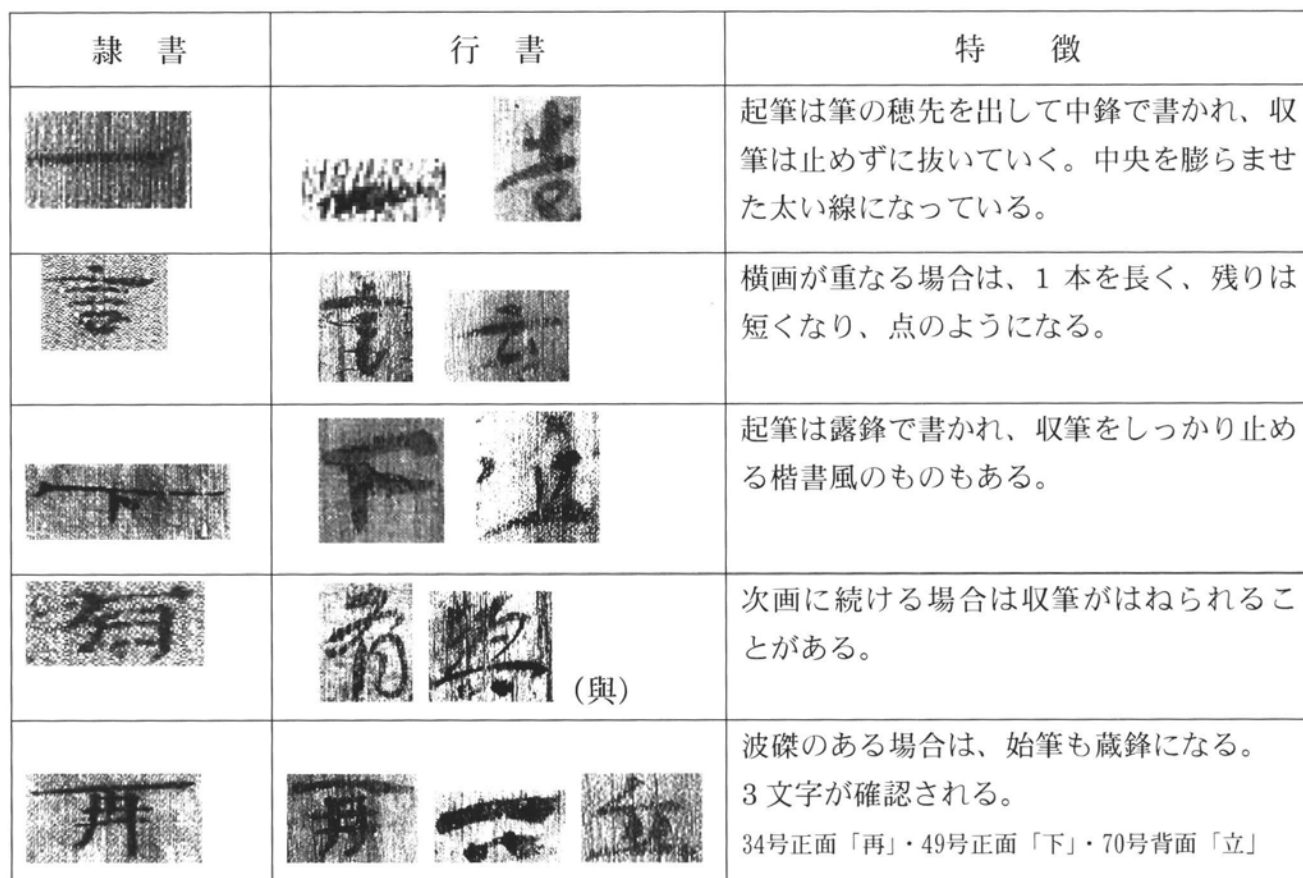 隷 書
行 書
特 徴
起筆は筆の穂先を出して中鋒で書かれ、収
筆は止めずに抜いていく。中央を膨らませ
た太い線になっている。
横画が重なる場合は、1 本を長く、残りは
短くなり、点のようになる。
起筆は露鋒で書かれ、収筆をしっかり止め
る楷書風のものもある。
(與)
次画に続ける場合は収筆がはねられるこ
とがある。
再
再
波磔のある場合は、始筆も蔵鋒になる。
3 文字が確認される。
34号正面「再」・49号正面「下」・70号背面「立」